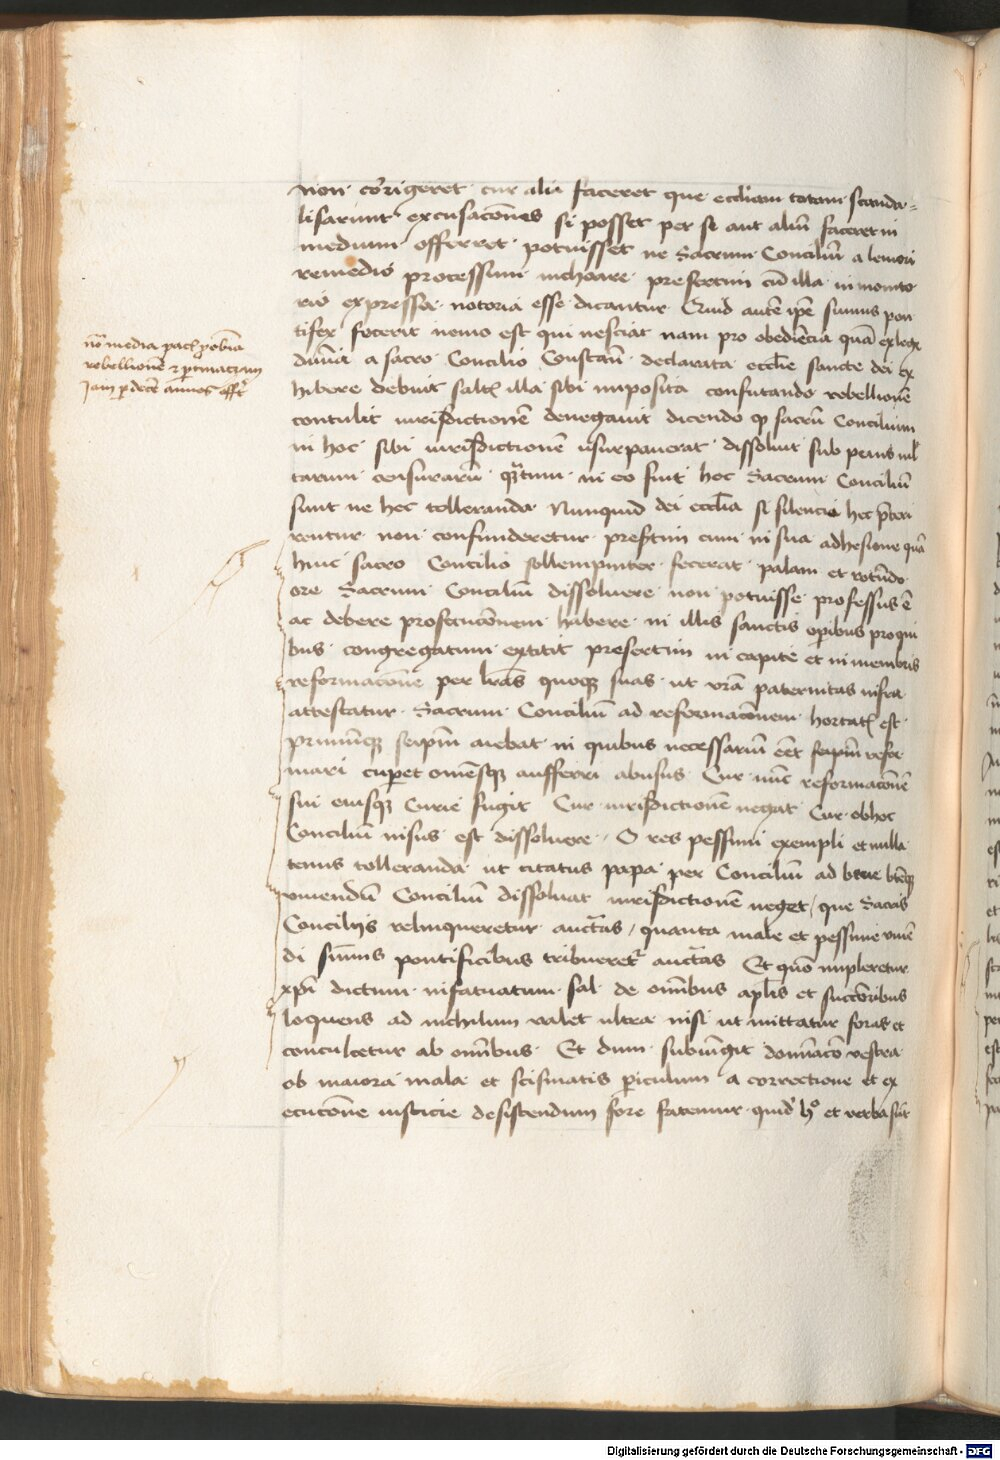 non corrigeret cur alii faceret que eccliam totam scanda-
lisarunt excusacones si posset per se aut aliu faceret in
medium offerret potuisset ne Sacrum Conciliu a leniori
remedio processum inchoare presertim cu illa in monito
rio expressa notoria esse dicantur Quid aute ipe sumus pon
tifex fecerit nemo est qui nesciat nam pro obediencia qua ex lege
divina a sacro Concilio Constan declarata ecclie sancte dei ex
hibere debuit salte illa sibi imposita confutando rebellione
contulit iurisdictione denegavit dicendo q sacru Concilium
in hoc sibi iurisdictione usurpaverat dissolvit sub penis ml
tarum censuraru in eo fuit hoc Sacrum Conciliu
sunt ne hec tolleranda Nunquid dei ecclia si silencio hec pteri
rentur non confunderetur presertim cum in sua adhesione qua
huic sacro Concilio sollempniter fecerat palam et rotudo
ore Sacrum Conciliu dissolvere non potuisse professus e
ac debere prosecucionem habere in illis sanctis operibus pro qui
bus congregatum extitit presertim in capite et in membris
reformacione per lras quoque suas ut vra paternitas infra
attestatur Sacrum Conciliu ad reformacionem hortat est
primuque seipm aiebat in quibus necessariu eet seipm refor
mari cuperet omesque aufferri abusus Cur nuc reformacone
sui eiusque Curie fugit Cur iurisdictione negat Cur ob hoc
Conciliu nisus est dissolvere O res pessimi exempli et nulla
tenus tolleranda ut citatus papa per Concilium ad bene
vivendu Conciliu dissolvat iurisdictione neget / que Sacris
Conciliis relinqueretur auctas / quanta male et pessime viven
di sumis pontificibus tribueretur auctas Et quo impleretur
xpi dictum infatuatum sal de omibus aplis et succoribus
loquens ad nichilum valet ultra nisi ut mittatur foras et
conculcetur ab omibus Et dum subiungit donacio vestra
ob maiora mala et scismatis periculum a correctione et ex
ecucone iusticie desistendum fore fatemur quid ho et verba sut
no media pacl
rebellione et ptinaciam
iam p dicte
Digitalisierung gefördert durch die Deutsche Forschungsgemeinschaft - DFG